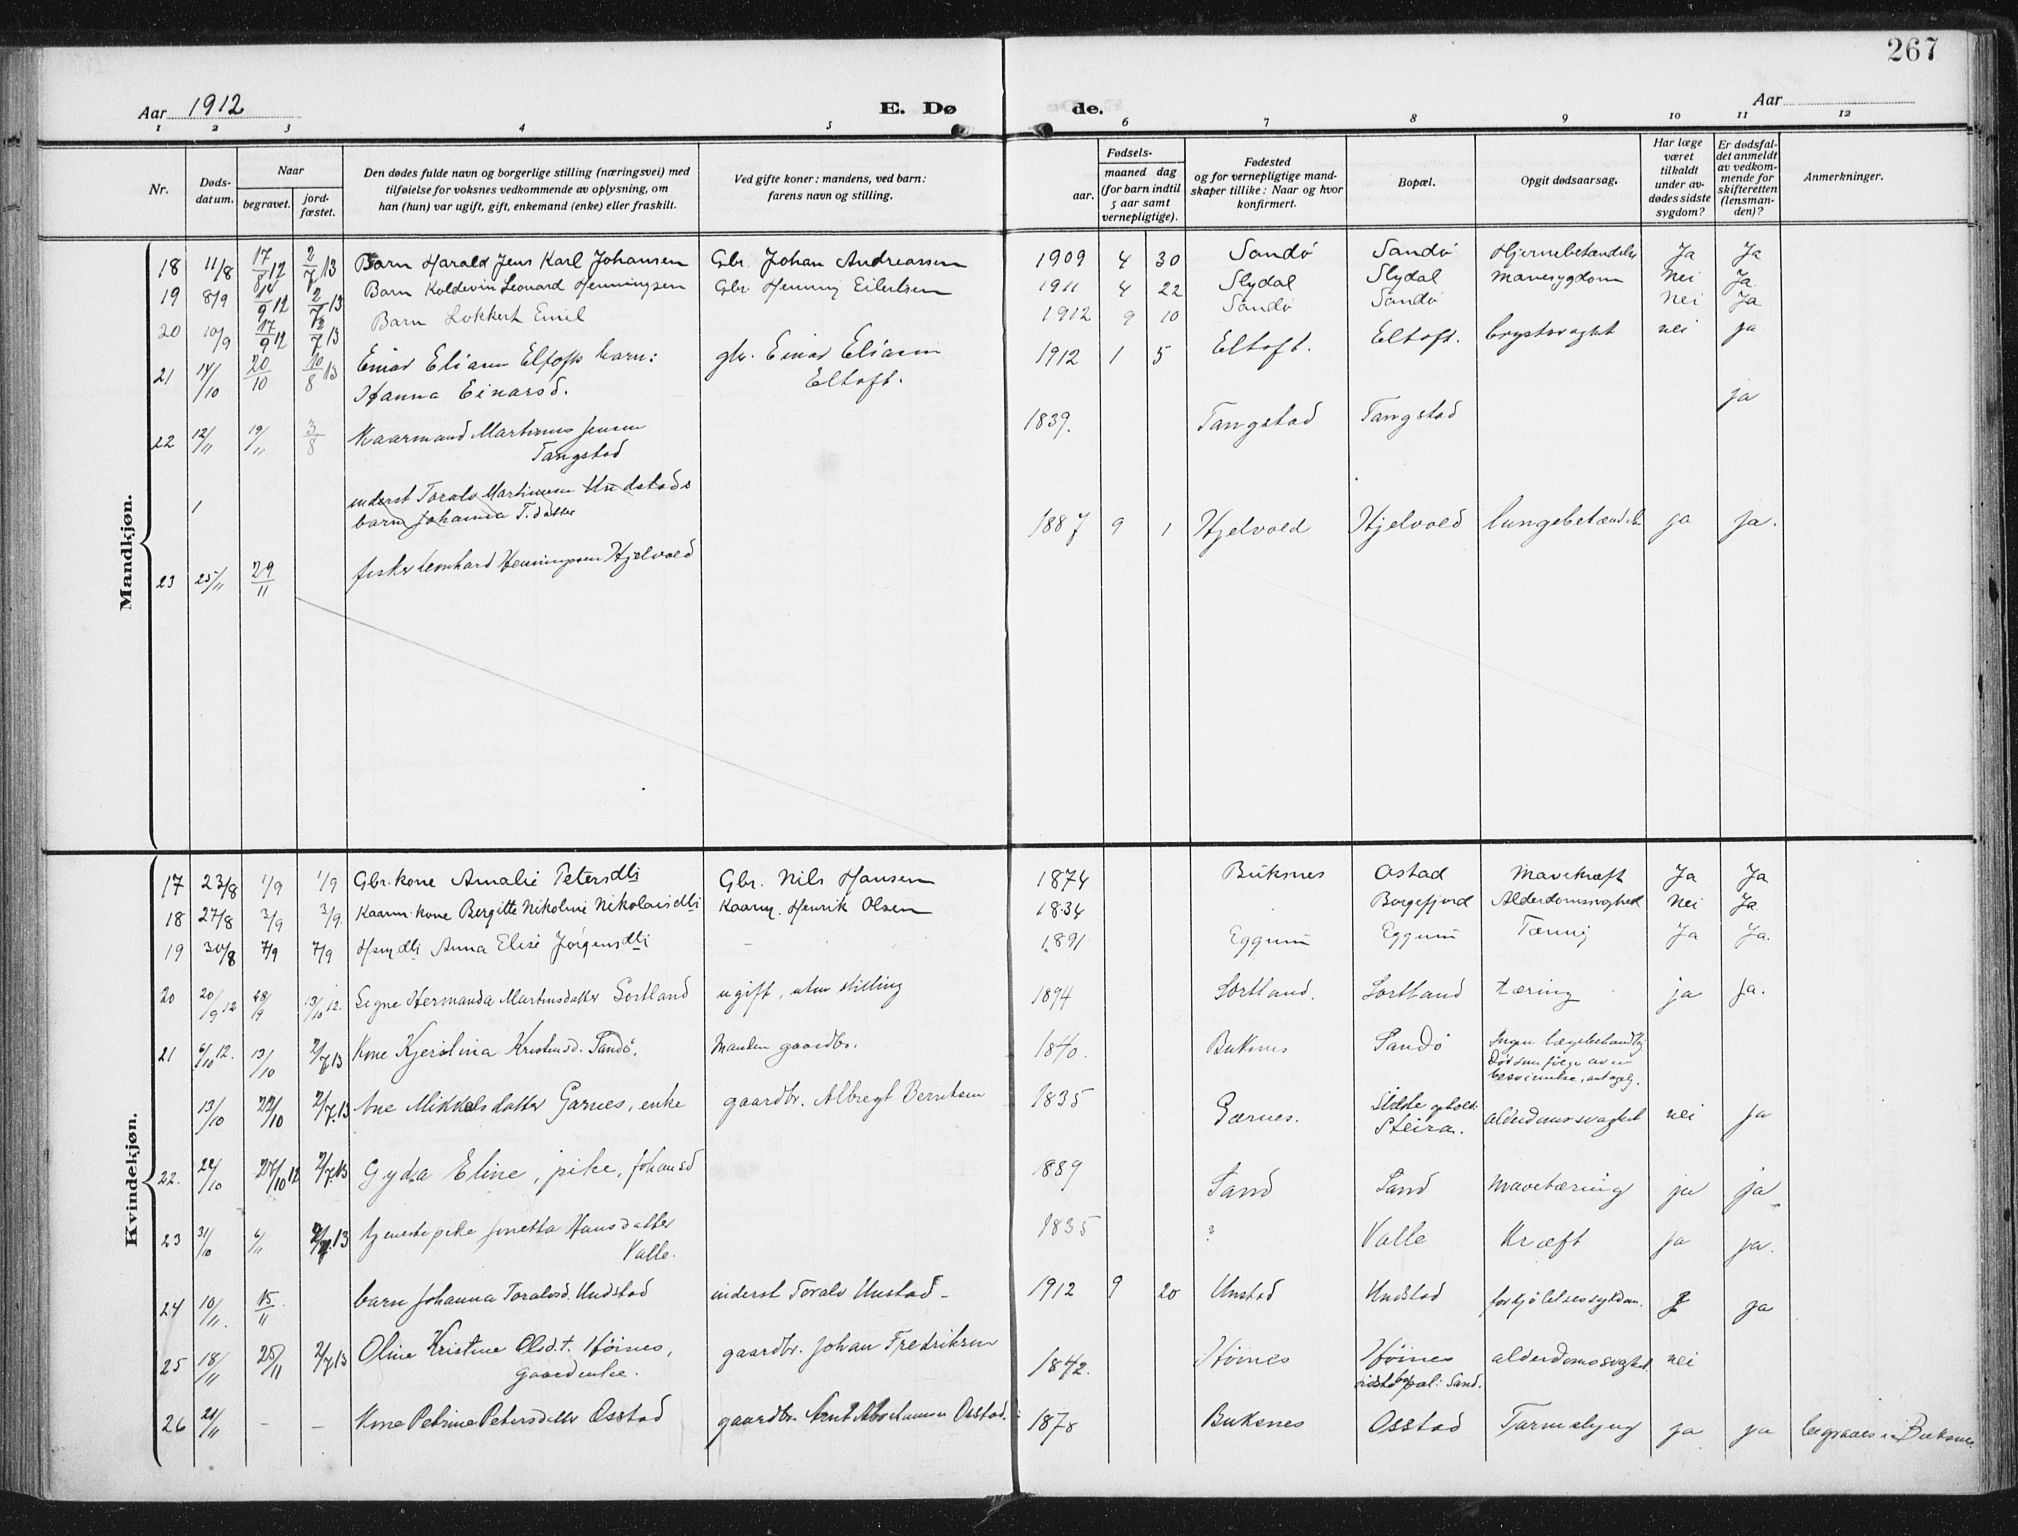 267
Aar 1912 E. Dø de. Aar
1 2 3 4 5 6 7 8 9 10 11 12
Nr. Døds-datum. Naar begravet. jord-fæstet. Den dødes fulde navn og borgerlige stilling (næringsvei) med tilføielse for voksnes vedkommende av oplysning, om han (hun) var ugift, gift, enkemand (enke) eller fraskilt. Ved gifte koner: mandens, ved barn: farens navn og stilling. Fødsels- aar. maaned dag (for barn indtil 5 aar samt vernepligtige). Fødested og for vernepligtige mand-skaper tillike: Naar og hvor konfirmert. Bopæl. Opgit dødsaarsag. Har læge været tilkaldt under av-dødes sidste sygdom? Er dødsfal-det anmeldt av vedkom-mende for skifteretten (lensman-den)? Anmerkninger.
Mandkjøn.
18 11/8 17/8 12 2/7 13 Barn Harald Jens Karl Johansen Gbr. Johan Andreassen 1909 4 30 Sandø Sandø Hjernebetændelse Ja Ja
19 8/9 14/9 12 2/7 13 Barn Koldevin Leonard Henningsen Gbr. Henning Eilertsen 1911 4 22 Slydal Slydal Mavesygdom Nei Ja.
20 10/9 17/9 12 2/7 13 Barn Lokkert Emil 1912 9 10 Sandø Sandø Nei Ja
21 14/10 20/10 10/8 13 Einar Eliassen Eltofts barn: gbr. Einar Eliassen 1912 1 5 Eltoft. Eltoft. brystsvaghet nei ja
Hanna Einarsd. Eltoft.
22 12/11 19/11 3/8 Kaarmand Martinus Jensen 1839. Tangstad Tangstad ja
Tangstad
1 inderst Toralv Martinussen Undstads
barn Johanna T.datter
23 25/11 29/11 fisker Leonhard Henningsen Hjelvold 1887 9 1 Hjelvold Hjelvold lungebetændelse ja ja.
Kvindekjøn.
17 23/8 1/9 1/9 Gbr. kone Amalie Petersdtr Gbr. Nils Hansen 1874 Buksnes Ostad Mavekræft Ja Ja
18 27/8 3/9 3/9. Kaarm. kone Bergitte Nikoline Nikolaisdtr Kaarm. Henrik Olsen 1834 Borgefjord Alderdomssvaghed Nei Ja.
19 30/8 7/9 7/9 Hsm dtr Anna Elise Jørgensdtr - 1891 Eggum Eggum Tæring Ja Ja.
20 20/9 12 28/9 13/10 12. Signe Hermanda Martinsdatter Sortland ugift, uten stilling 1894 Sortland. Sortland tæring ja ja.
21 6/10 12. 13/10 2/7 13 Kone Kjerstina Kristensd. Sandø. Manden gaardbr. 1840. Buksnes Sandø Ingen lægebehandling
Død som følge av en
besvimelse, antagelig.
13/10 22/10 2/7 13 Ane Mikkelsdatter Gærnes, enke gaardbr. Albregt Berntsen 1835 Gærnes. Sidste ophold: Steira. alderdomssvaghet nei ja
22. 22/10 27/10 12 2/7 13 Gyda Eline, pike, Johansd 1889 Sand Sand mavetæring ja ja
23 31/10 6/11 2/7 13 tjenestepike Jonetta Hansdatter 1835 ? Valle Kræft ja ja.
Valle.
24 10/11. 15/11 barn Johanna Toralvsd. Undstad inderst Toralv Unstad - 1912 9 20 Unstad Undstad forkjølelsessykdom. ja
25 18/11 25/11 2/7 13 Oline Kristine Olsd.t. Høines, gaardbr. Johan Fredriksen 1842. Høines Høines alderdomssvaghet nei
gaardenke. sidste bopæl: Sand.
26 21/11 - - Kone Petrine Petersdatter Osstad gaardbr. Arnt Abrahamsen Osstad. 1878 Buksnes Osstad Tarmslyng ja ja begraves i Buksnes